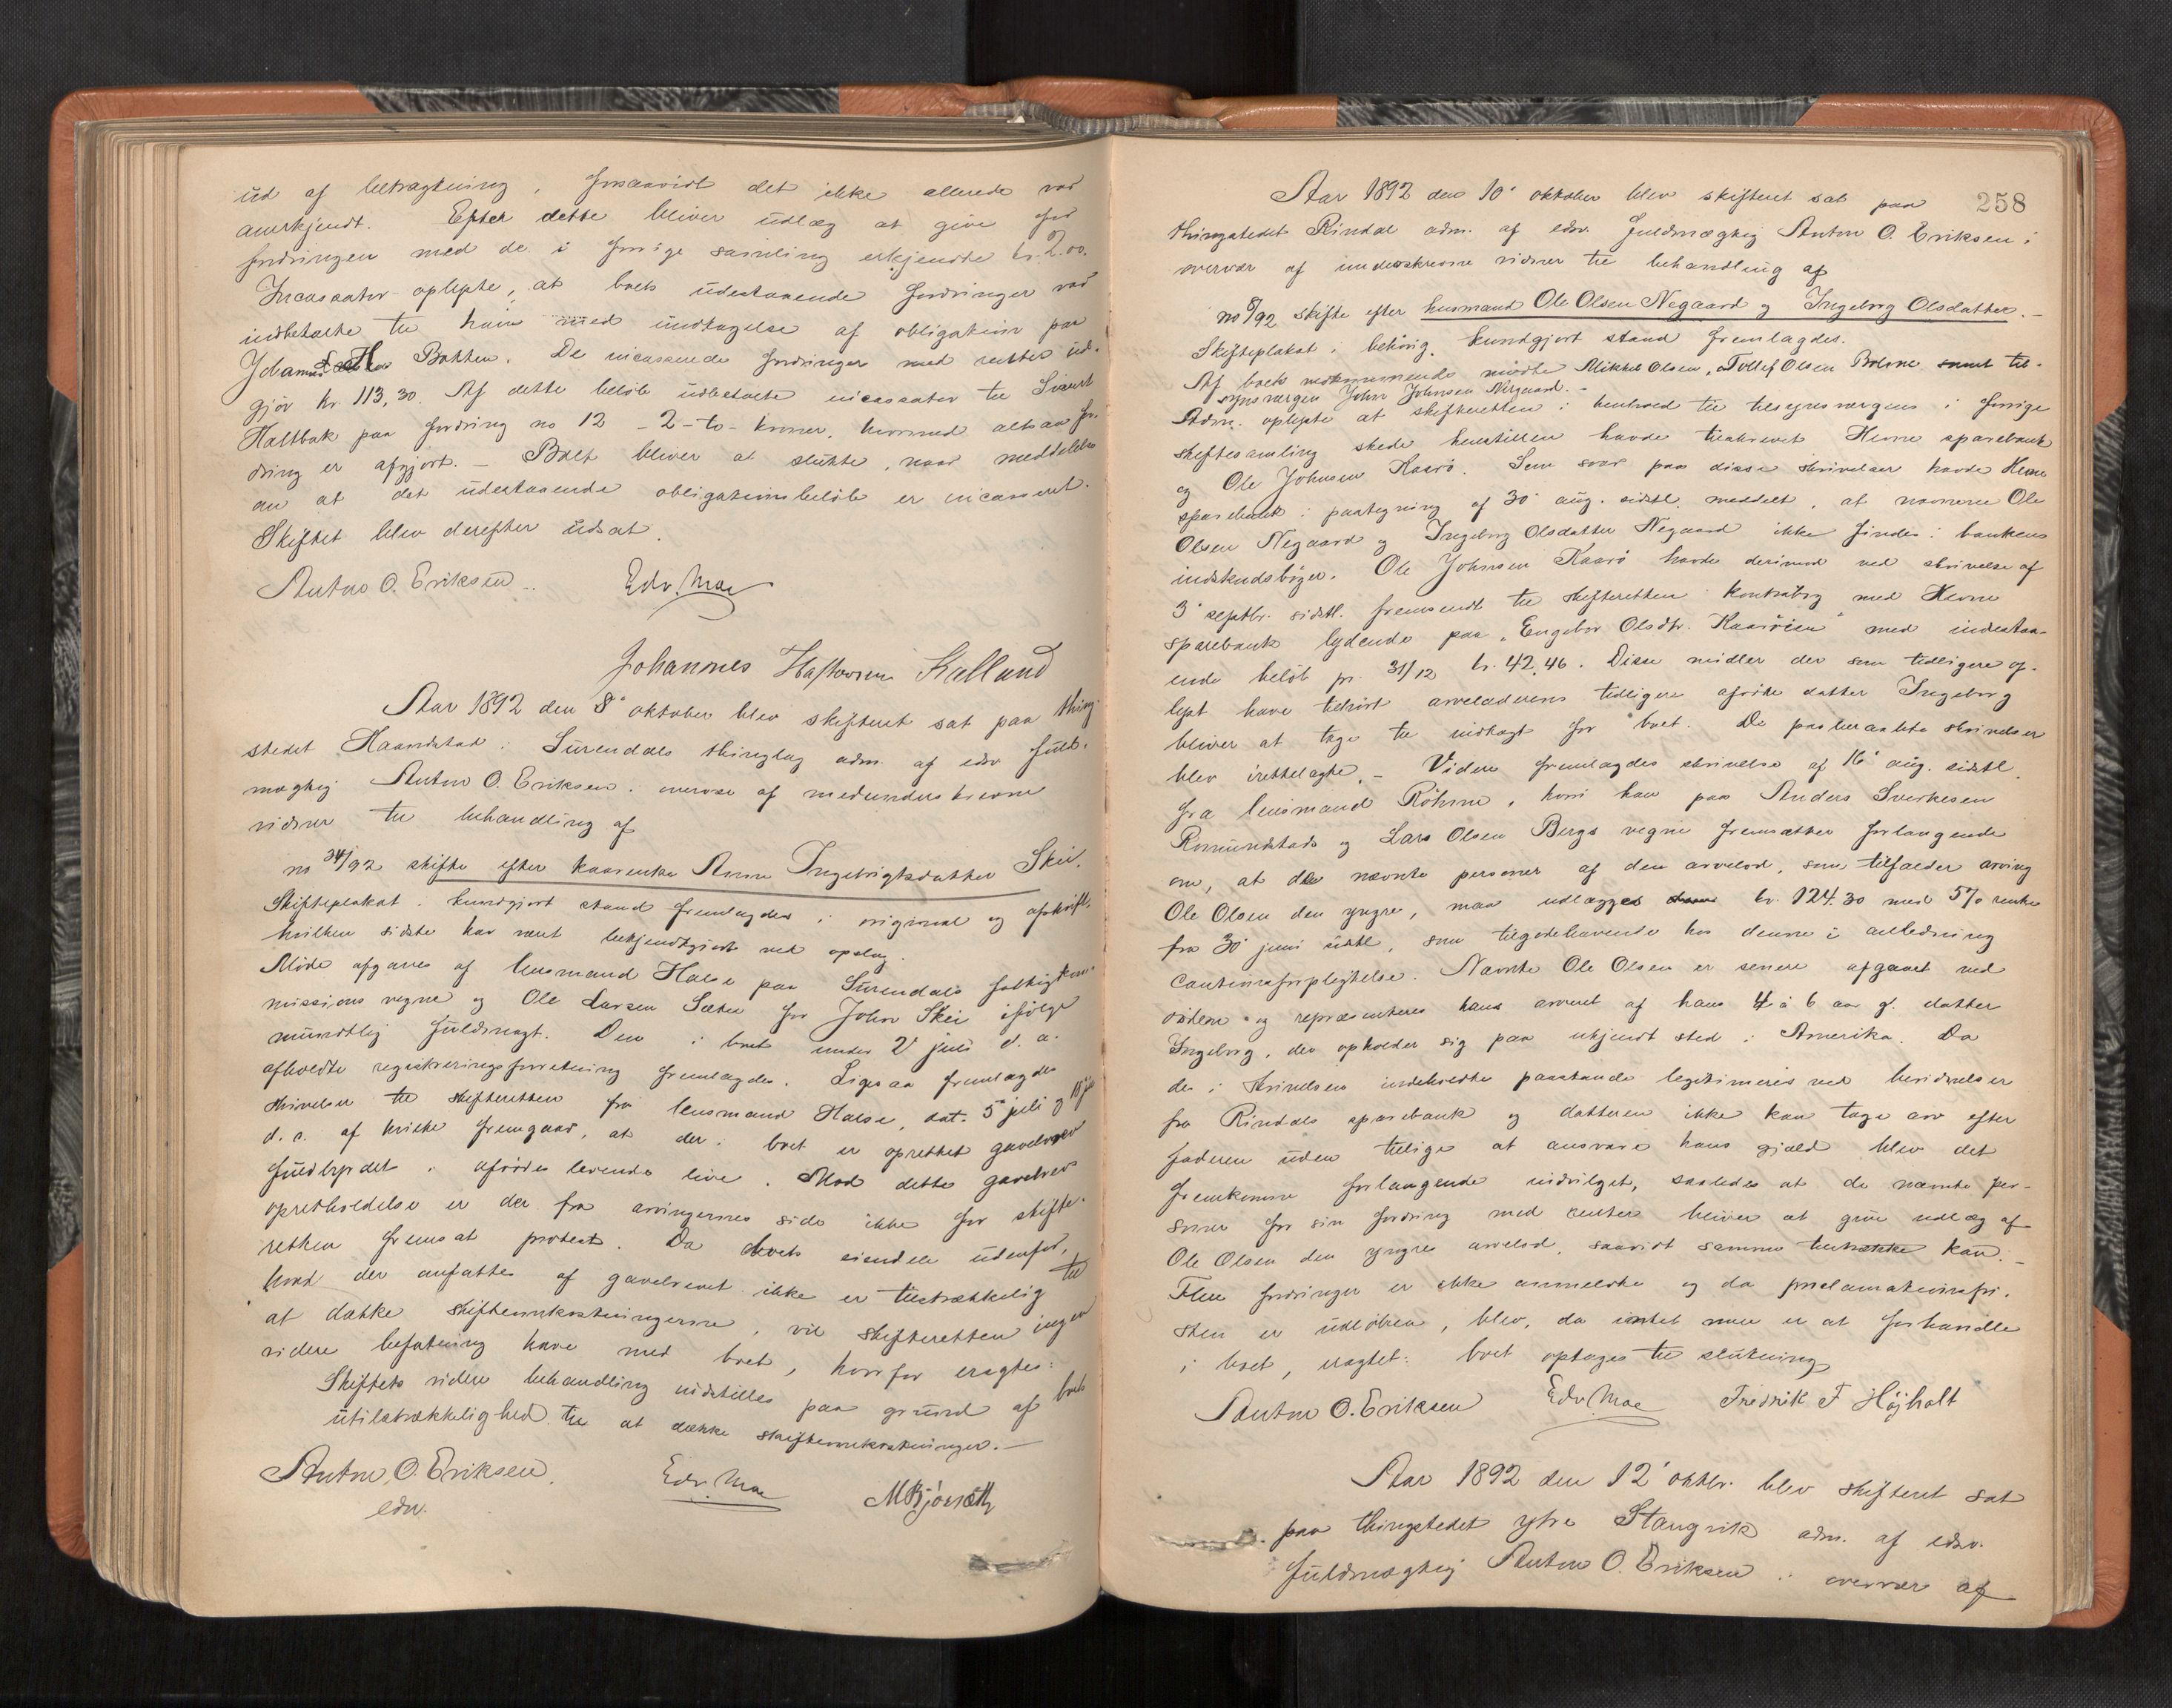 ud af betragtning, forsaavidt det ikke allerede var
anerkjendt. Efter dette bliver udlæg at give for
fordringen med de i forrige samling erkjendte kr. 2.00.
Incassator oplyste, at boets udestaaende fordringer var
indbetalte til ham med undtagelse af obligation paa
Johannes Botten. De incasserede fordringer med renter ud-
gjør kr. 113,30. Af dette beløb udbetalte incassator til Sivert
Haltbak paa fordring no 12 - 2 - to - kroner, hvormed altsaa for-
dring er afgjort. - Boet bliver at slutte, naar meddelelse
om at det udestaaende obligationsbeløb er incasseret.
Skiftet blev derefter udsat.
Anton O. Eriksen. Edv. Moe
Johannes Kalland
Aar 1892 den 8' oktober blev skifteret sat paa thing-
stedet Haandstad i Surendals thinglag adm. af edsv. fuld-
mægtig Anton O. Eriksen i overvær af medunderskrevne
vidner til behandling af
no 34/92 skifte efter kaarenke Anne Ingebrigtsdatter Skei.
Skifteplakat i kundgjort stand fremlagdes i original og afskrift,
hvilken sidste har været bekjendtgjort ved opslag.
Møde afgaves af lensmand Halse paa Surendals fattigkom-
missions vegne og Ole Larsen Sæter for John Skei ifølge
mundtlig fuldmagt. Den i boet under 2' juli d. a.
afholdte registreringsforretning fremlagdes. Ligesaa fremlagdes
skrivelser til skifteretten fra lensmand Halse, dat. 5' juli og
d. a. af hvilke fremgaar, at der i boet er oprettet gavebrev
fuldbyrdet i afdødes levende live. Mod dette gavebrevs
opretholdelse er der fra arvingernes side ikke for skifte-
retten fremsat protest. Da boets eiendele udenfor,
hvad der omfattes af gavebrevet ikke er tilstrækkelig til
at dække skifteomkostningerne, vil skifteretten ingen
videre befatning have med boet, hvorfor eragtes:
Skiftets videre behandling indstilles paa grund af boets
utilstrækkelighed til at dække skifteomkostninger. -
Anton O. Eriksen. Edv. Moe
edsv.
258
Aar 1892 den 10' oktober blev skifteret sat paa
thingstedet Rindal adm. af edsv. fuldmægtig Anton O. Eriksen i
overvær af underskrevne vidner til behandling af
no 8/92 skifte efter husmand Ole Olsen Negaard og Ingeborg Olsdatter. -
Skifteplakat i behørig kundgjort stand fremlagdes.
Af boets vedkommende mødte Mikkel Olsen, Tollef Olsen Bolme samt til-
synsværgen John Johnsen Negaard. -
Adm. oplyste at skifteretten i henhold til tilsynsværgens i forrige
skiftesamling skede henstillen havde tilskrevet Hevne sparebank
og Ole Johnsen Kaarø. Som svar paa disse skrivelser havde Hevne
sparebank i paategning af 30' aug. sidstl. meddelt, at navnene Ole
Olsen Negaard og Ingeborg Olsdatter Negaard ikke findes i bankens
indskudsbøger. Ole Johnsen Kaarø havde derimod ved skrivelse af
3' septbr. sidstl. fremsendt til skifteretten kontrabog med Hevne
sparebank lydende paa "Engebor Olsdtr. Kaarøien" med indestaa-
ende beløb pr. 31/12 kr. 42,46. Disse midler der som tidligere op-
lyst have tilhørt arveladerens tidligere afdøde datter Ingeborg
bliver at tage til indtægt for boet. De paaberaabte skrivelser
blev irettelagte. - Videre fremlagdes skrivelse af 16' aug. sidstl.
fra lensmand Röhme, hvori han paa Anders Sverkesen
Romundstads og Lars Olsen Bergs vegne fremsætter forlangende
om, at de nævnte personer af den arvelod, som tilfalder arving
Ole Olsen den yngre, maa udlægges kr. 124.30 med 5% rente
fra 30' juni sidstl., som tilgodehavende hos denne i anledning
cautionsforpligtelse. Nævnte Ole Olsen er senere afgaaet ved
døden og repræsenteres hans arveret af hans 4 à 6 aar gl. datter
Ingeborg, der opholder sig paa ukjendt sted i Amerika. Da
de i skrivelsen indeholdte paastande legitimeres ved bevidnelser
fra Rindals sparebank og datteren ikke kan tage arv efter
faderen uden tillige at ansvare hans gjæld blev det
fremkomne forlangende indvilget, saaledes at de nævnte per-
soner for sin fordring med renter bliver at give udlæg af
Ole Olsen den yngres arvelod, saavidt samme tilstrække kan. -
Flere fordringer er ikke anmeldte og da proclamationsfri-
sten er udløben, blev, da intet mere er at forhandle
i boet, eragtet: boet optages til slutning
Anton O. Eriksen Edv. Moe Fredrik F Højholt
Aar 1892 den 12' oktbr. blev skifteret sat
paa thingstedet ytre Stangvik adm. af edsv.
fuldmægtig Anton O. Eriksen i overvær af